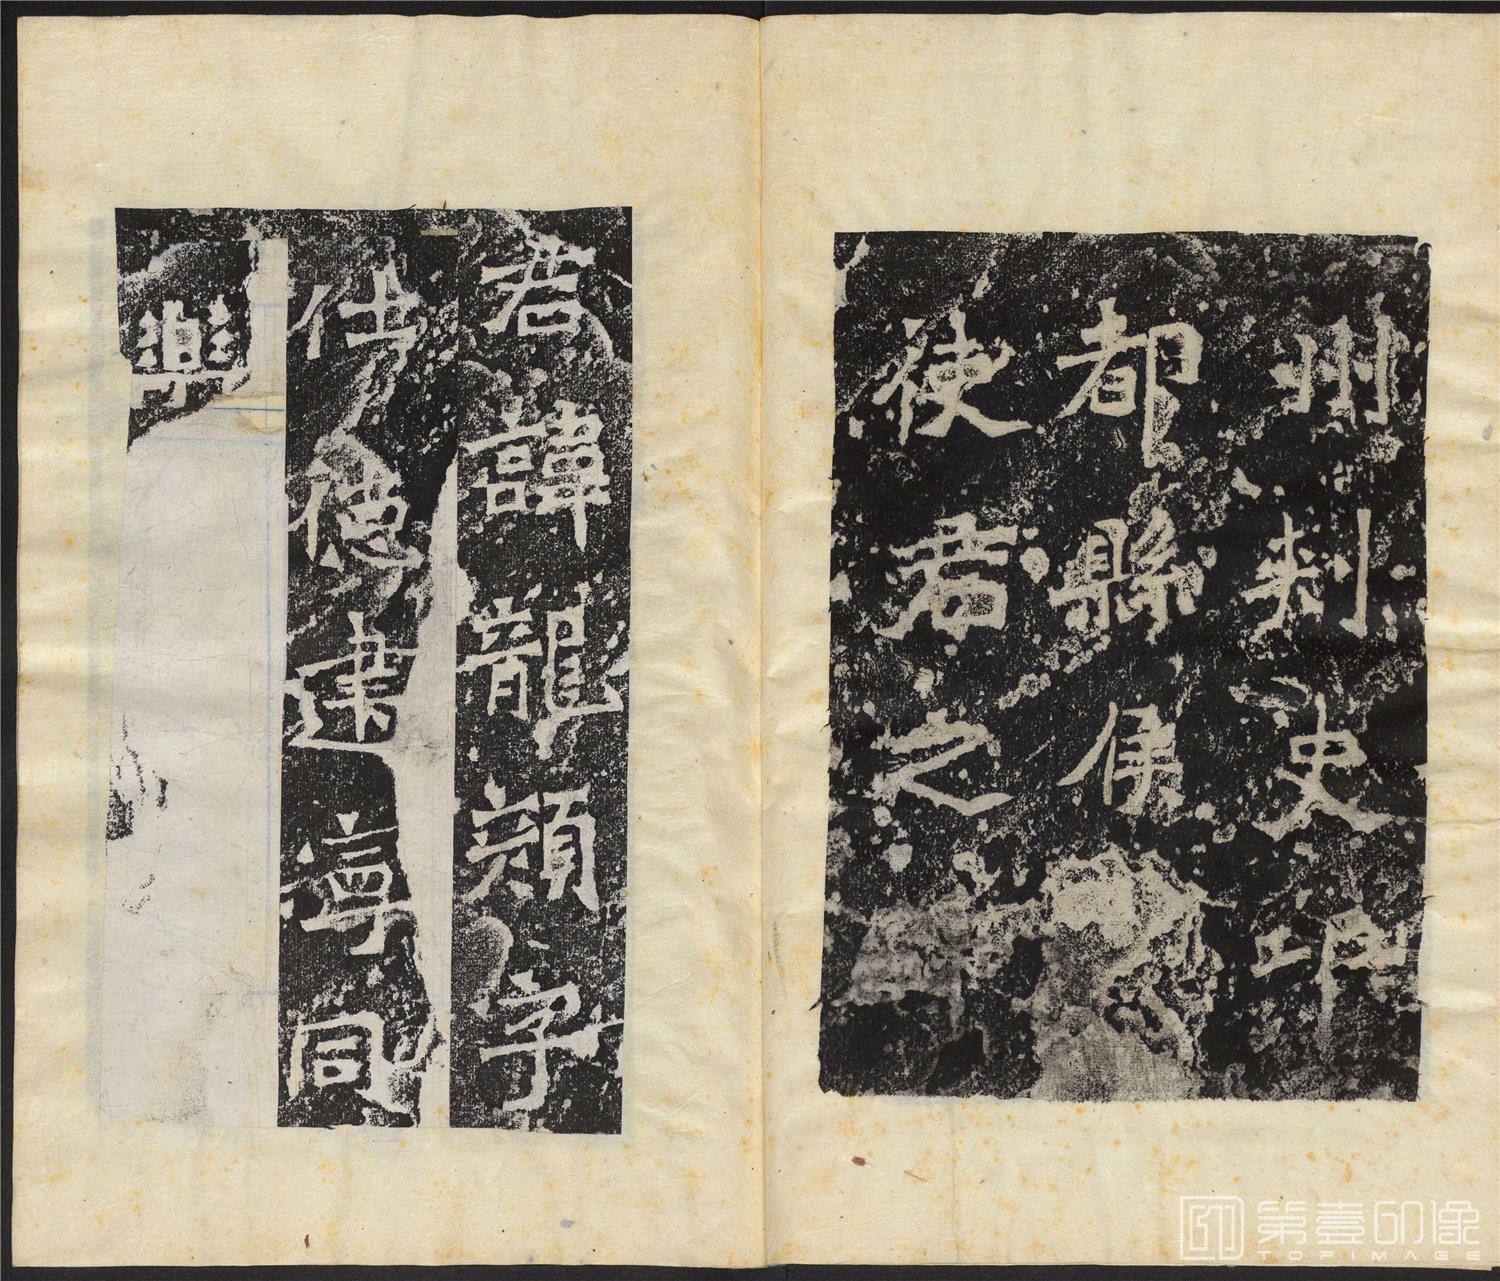 州刺史邛
都縣侯
使君之
君諱龍顏字
仕德建寧同
樂
第壹印像
TOPIMAGE